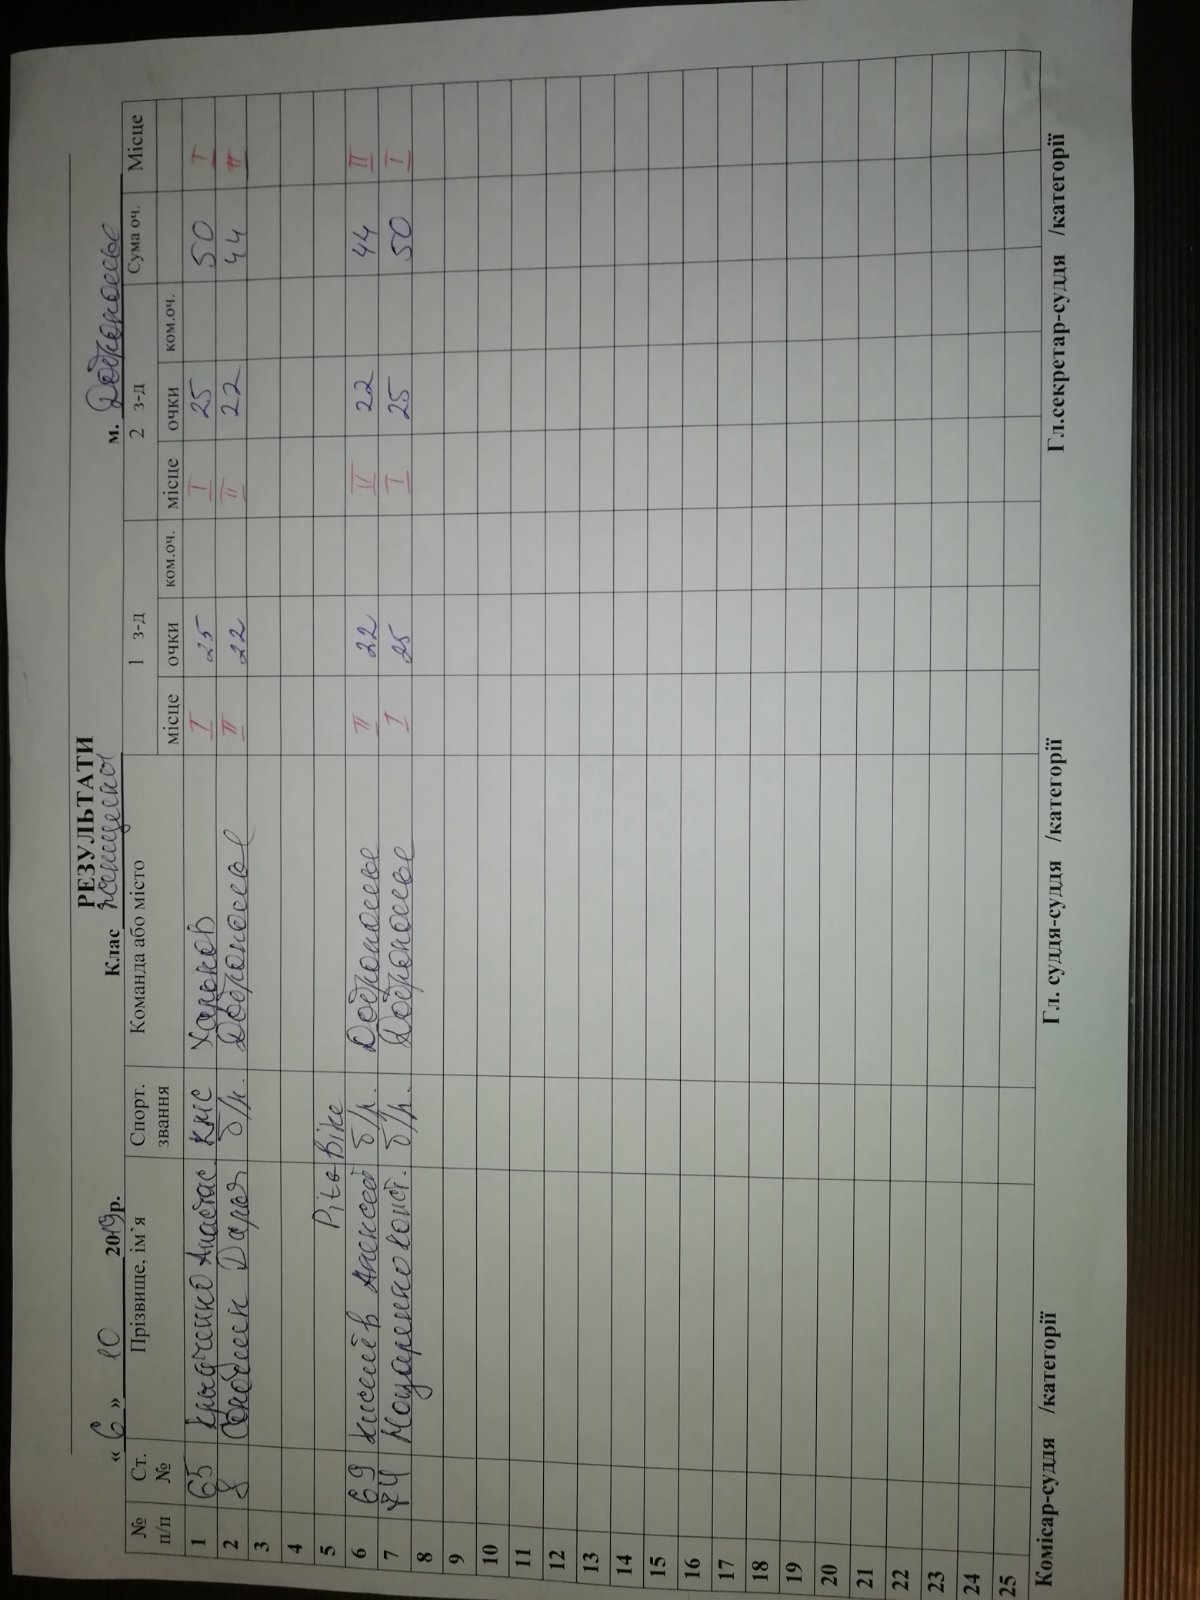 РЕЗУЛЬТАТИ
« 6 » 10 2019р. Клас женщины м. Доброполье
№ п/п Ст. № Прізвище, ім'я Спорт. звання Команда або місто 1 з-д 2 з-д Сума оч. Місце
місце очки ком.оч. місце очки ком.оч.
1 65 Анастас. КМС Харьков I 25 I 25 50 I
2 8 Дарья б/р. Доброполье II 22 II 22 44 II
3
4
5 Pits Bike
6 69 Киселёв Алексей б/р. Доброполье II 22 II 22 44 II
7 74 Конст. б/р. Доброполье I 25 I 25 50 I
8
9
10
11
12
13
14
15
16
17
18
19
20
21
22
23
24
25
Комісар-суддя /категорії Гл. суддя-суддя /категорії Гл.секретар-суддя /категорії